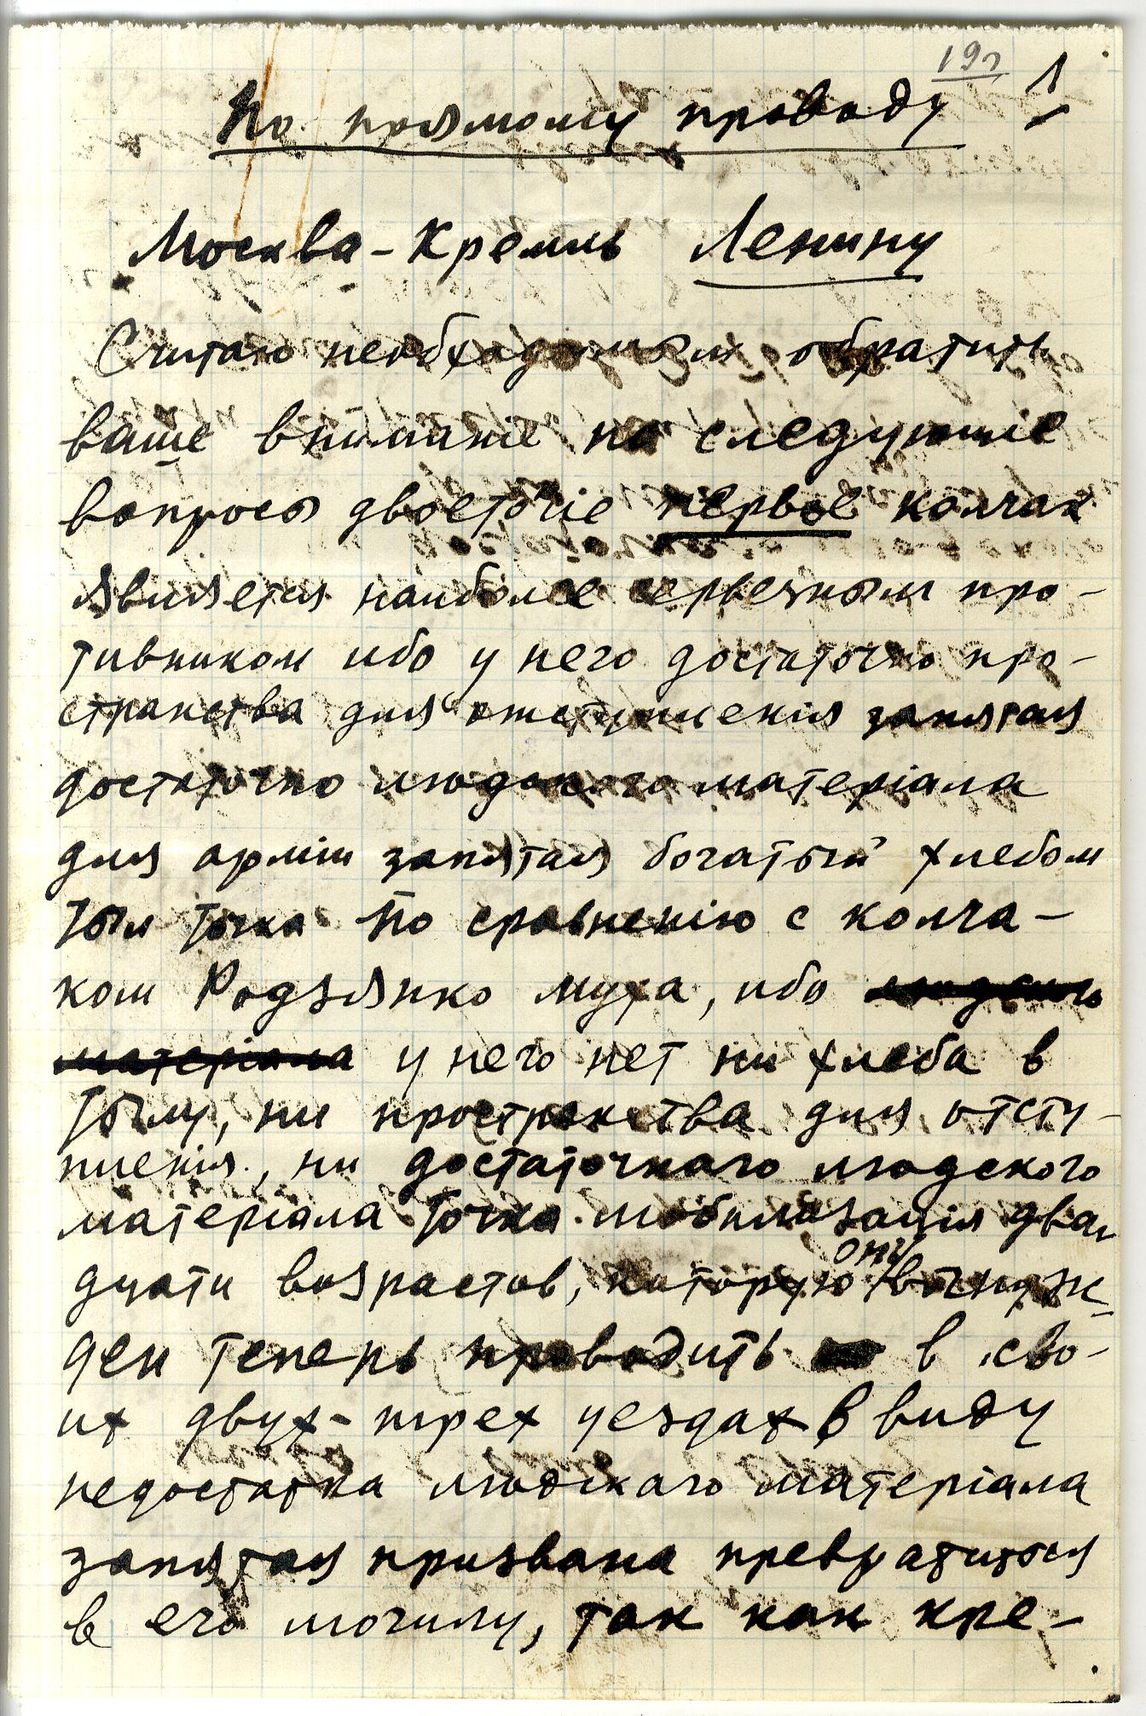 19г
1
По прямому проводу
Москва - Кремль Ленину
Считаю необходимым обратить
ваше вниманіе на следующіе
вопросы двоеточіе первое колчак
является наиболее серьезным про-
тивником ибо у него достаточно про-
странства для отступленія запятая
достаточно людского матеріала
для арміи запятая богатый хлебом
тыл точка По сравненію с колча-
ком Родзянко муха, ибо людского
матеріала у него нет ни хлеба в
тылу, ни пространства для отсту-
пленія, ни достаточнаго людского
матеріала точка мобилизація двад
цати возрастов, которую он вынуж-
ден теперь проводить в сво-
их двух-трех уездах в виду
недостатка людскаго матеріала
запятая призвана превратиться
в его могилу, так как кре-